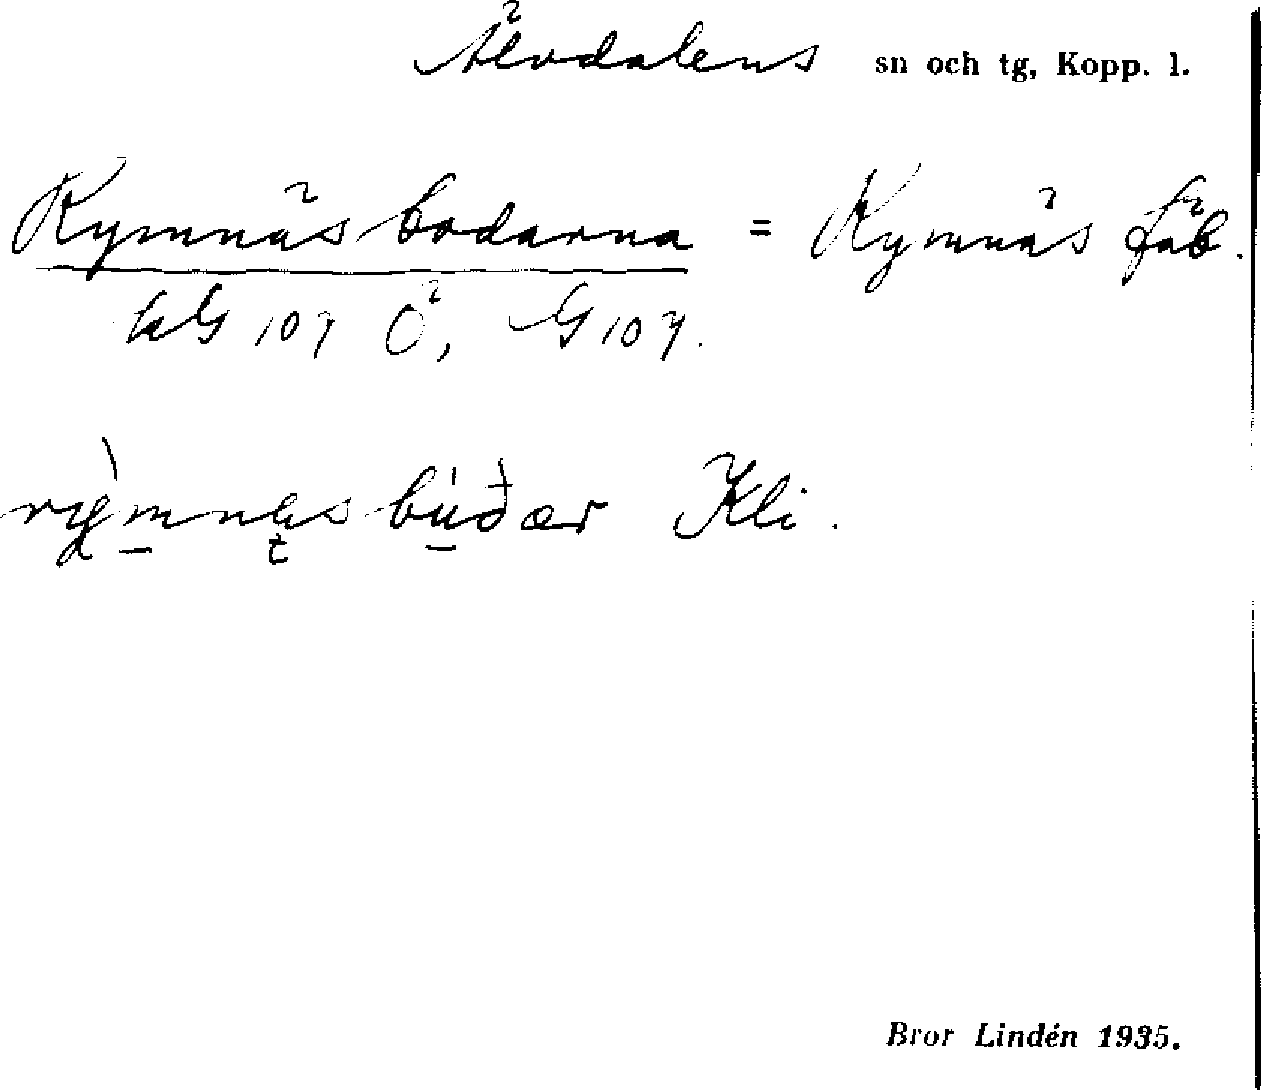 Älvdalens sn och tg, Kopp. l.
Rymnäsbodarna = Rymnäs fäb.
hG 107 Ö, G 107.
Kli.
Bror Lindén 1935.